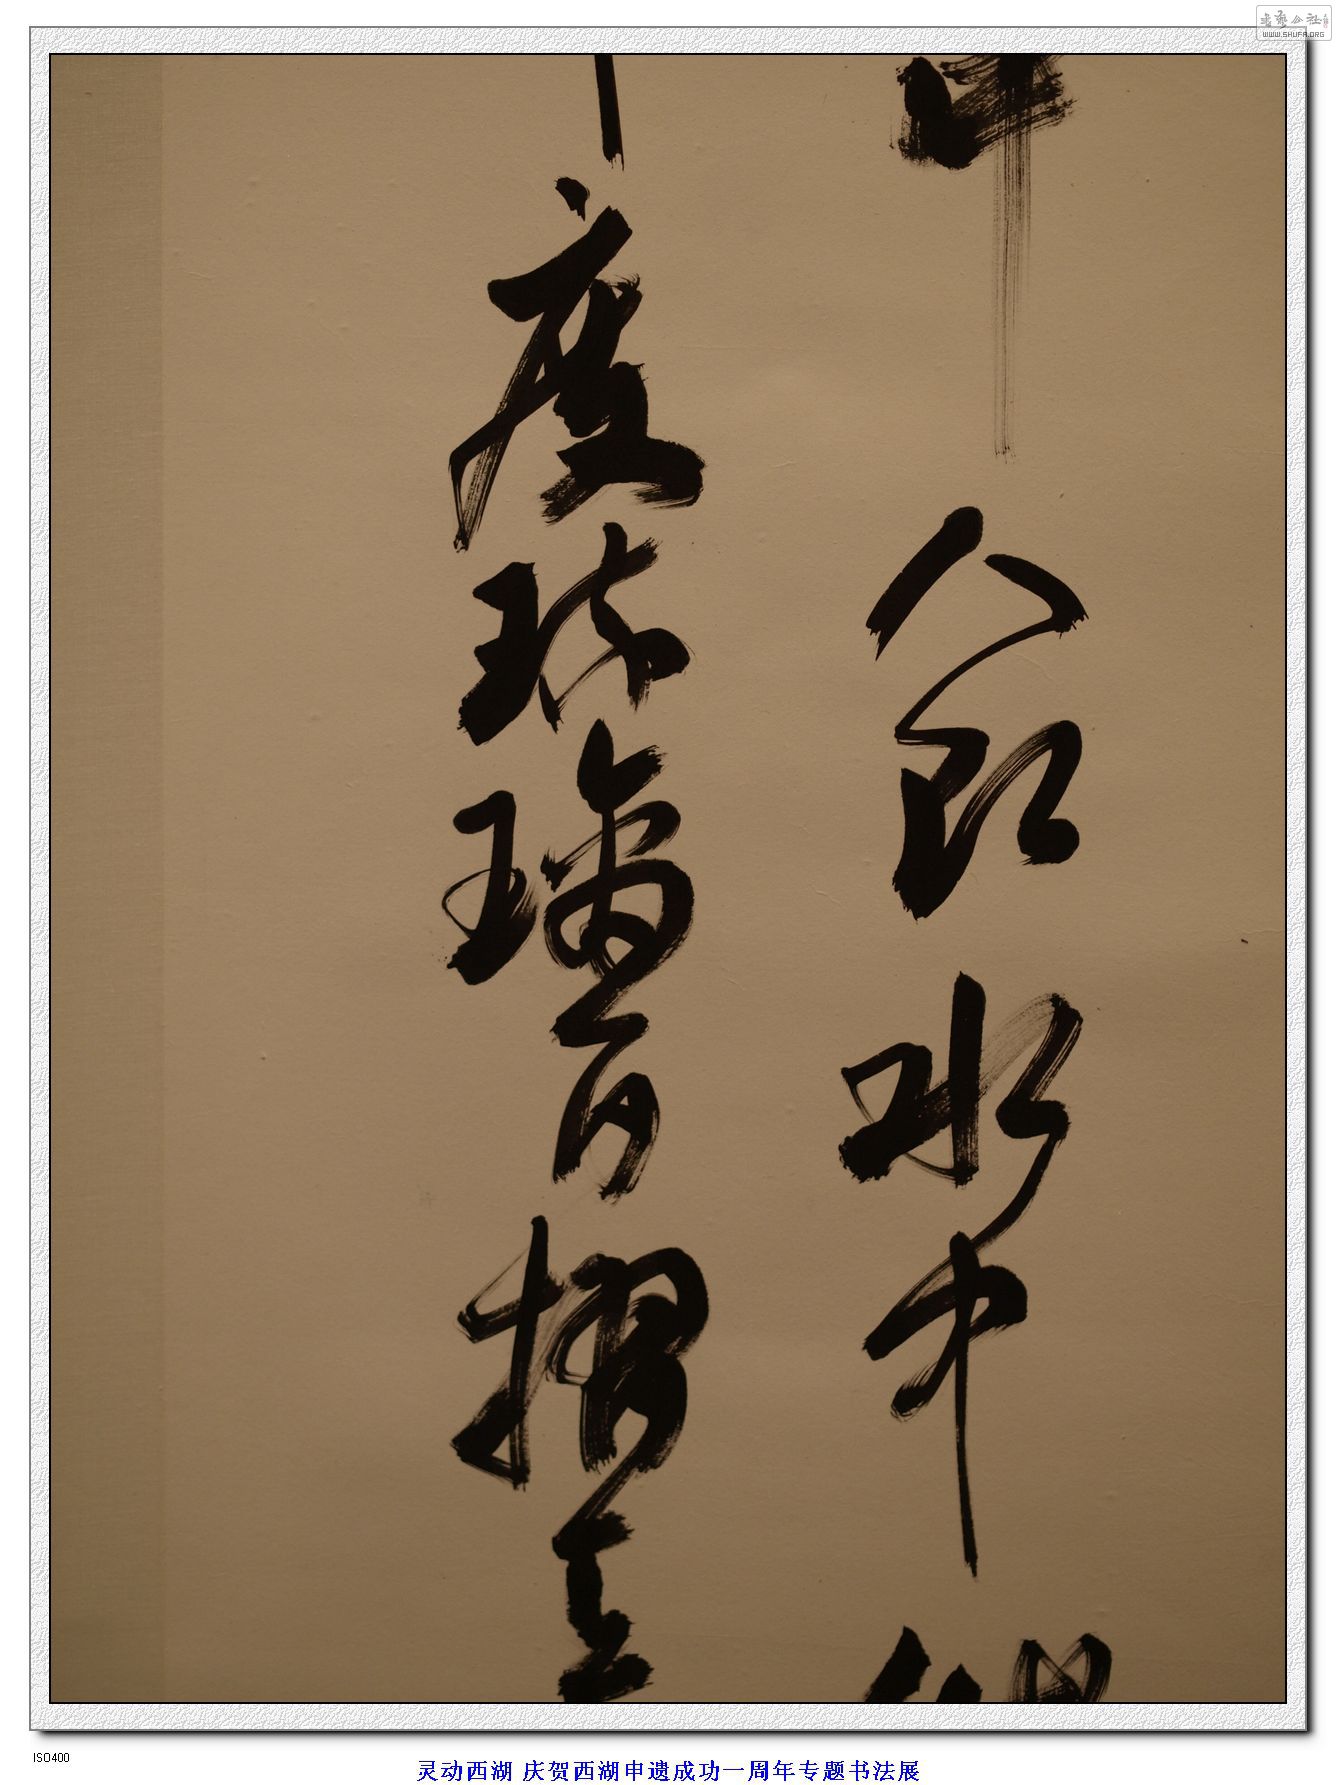 人即水中
度琉璃百摺
灵动西湖 庆贺西湖申遗成功一周年专题书法展
ISO400
书艺公社
WWW.SHUFA.ORG